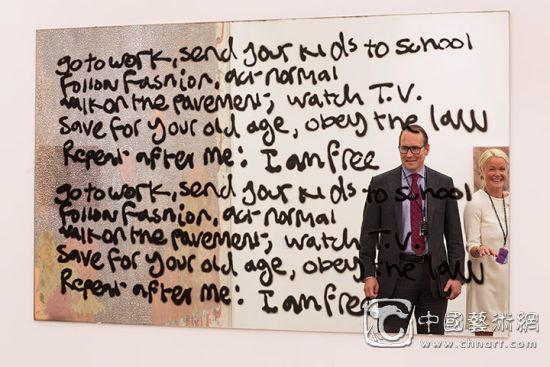 go to work, send your kids to school
Follow Fashion, act normal
walk on the pavement, watch T.V.
save for your old age, obey the law
Repeat after me: I am free
go to work, send your kids to school
Follow Fashion, act normal
walk on the pavement, watch T.V.
save for your old age, obey the law
Repeat after me: I am free
中國藝術網
www.chnart.com